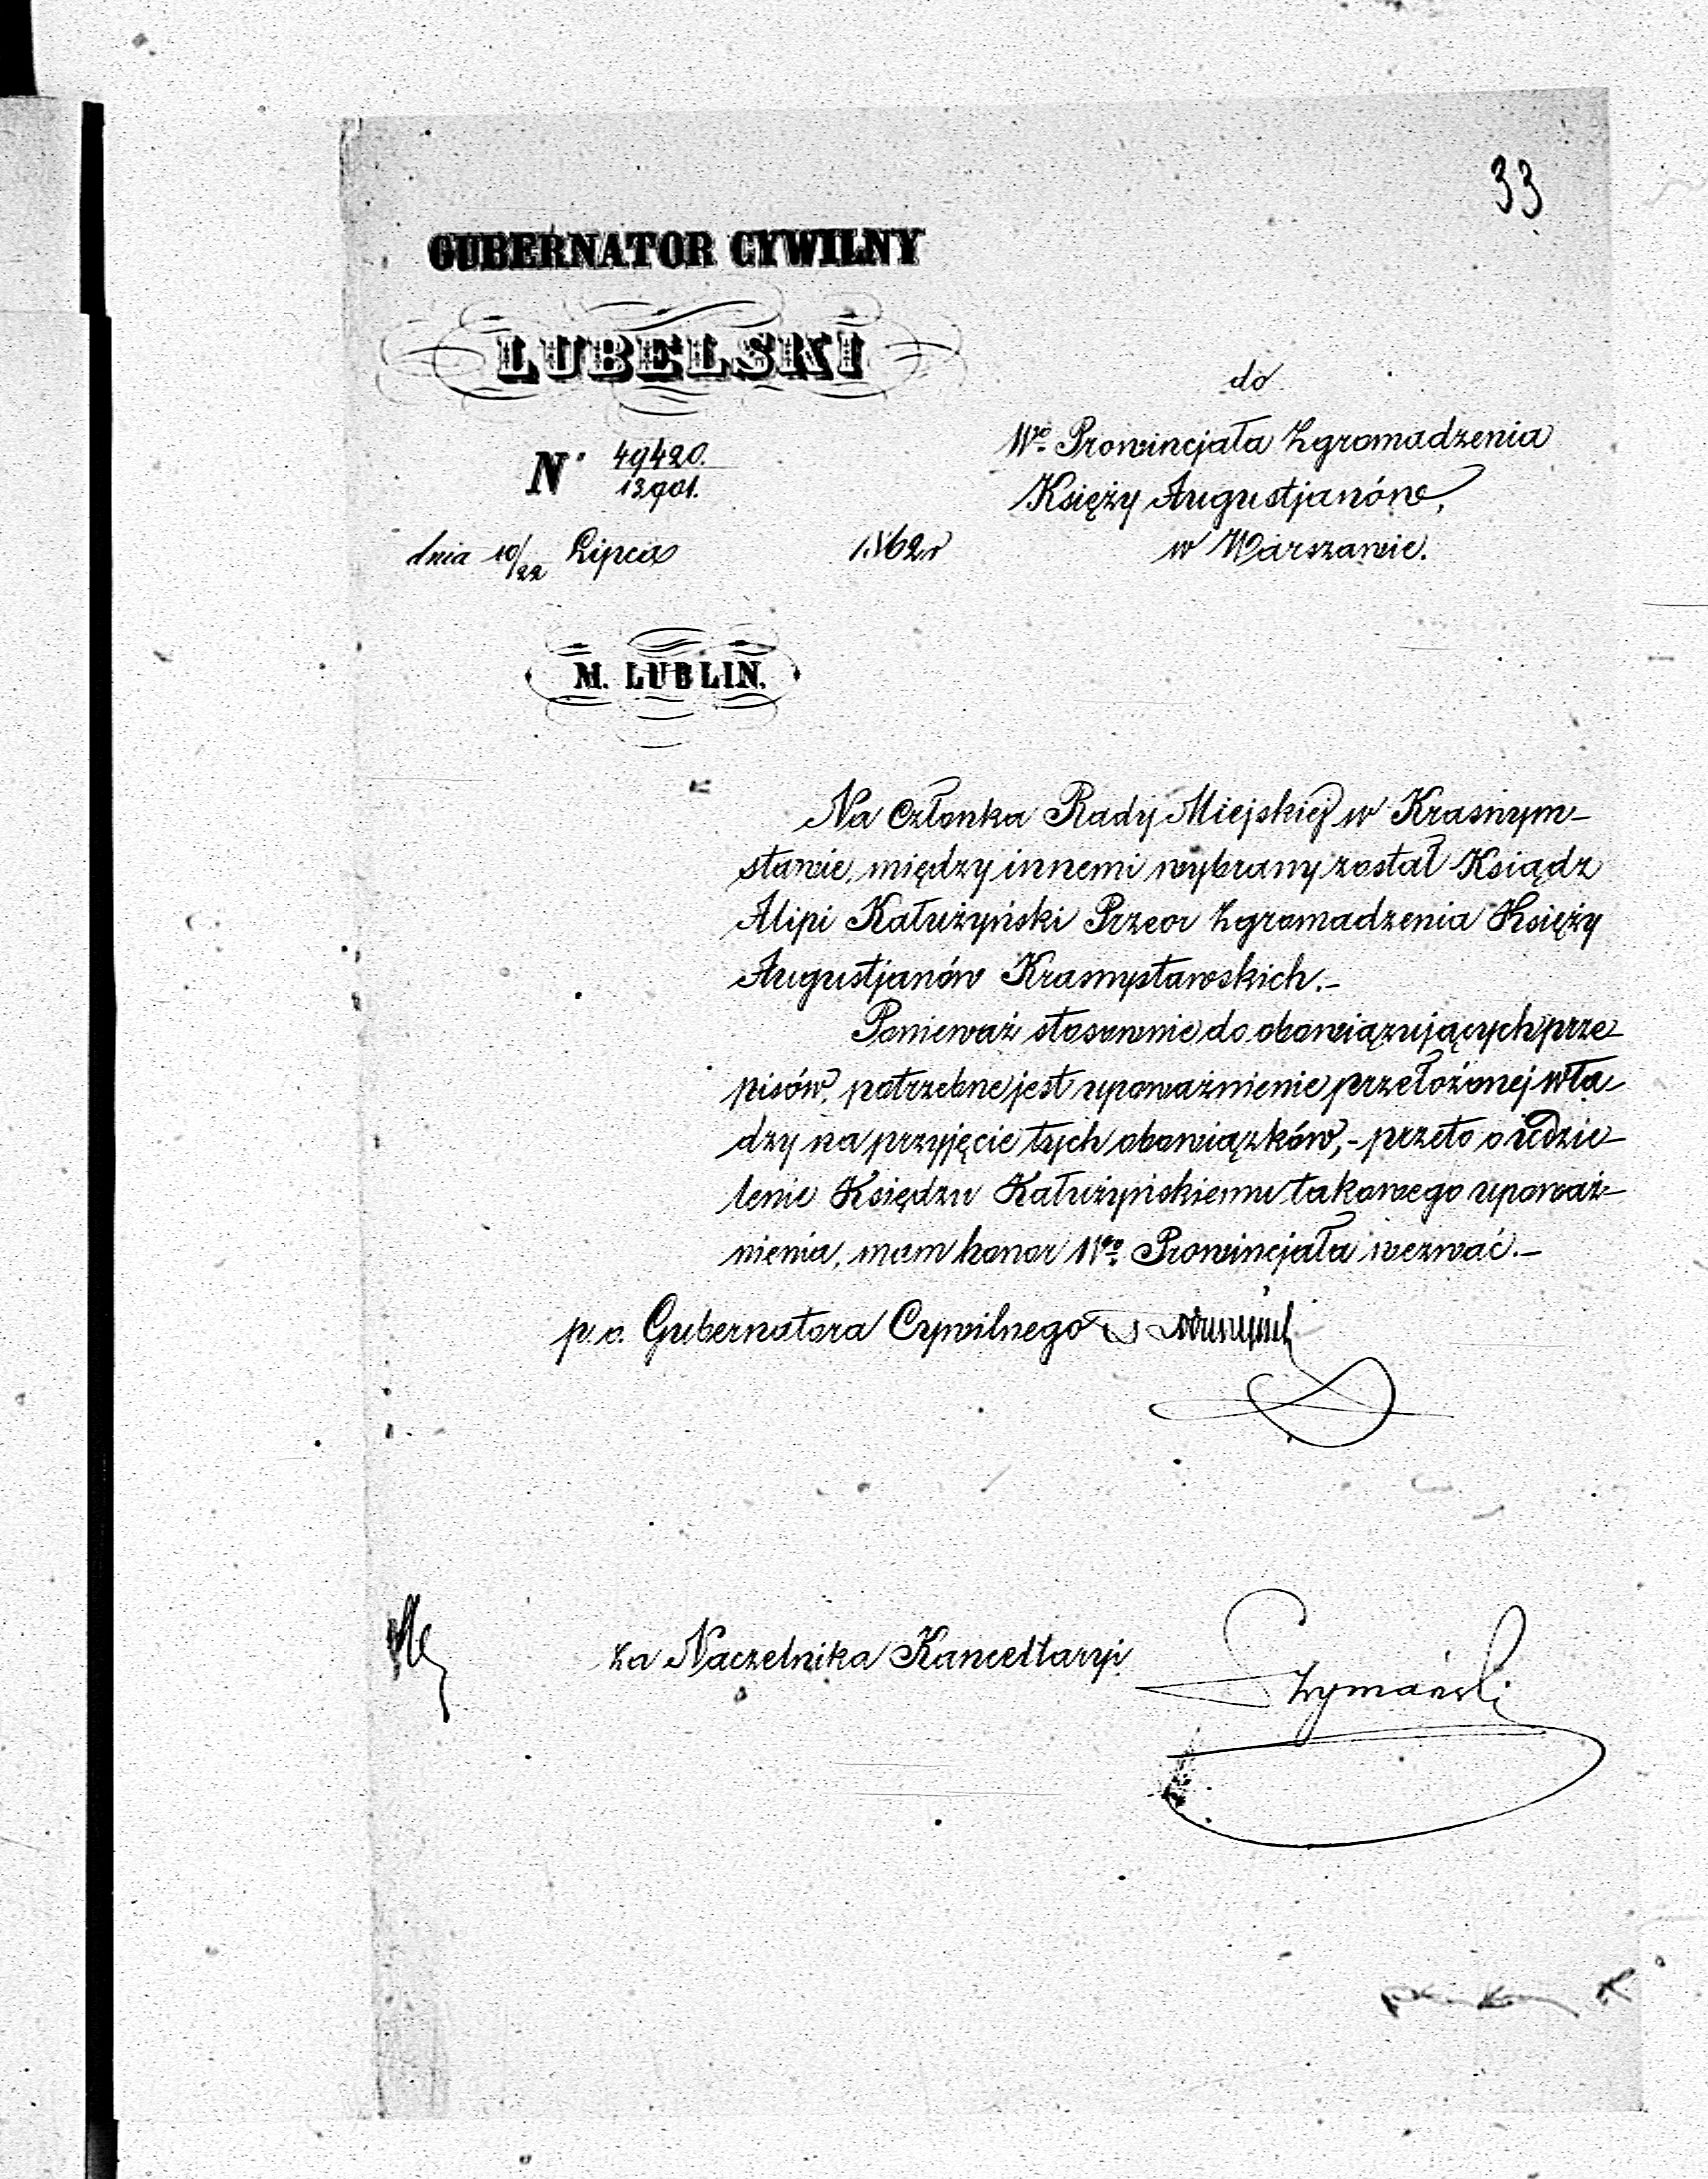 33
GUBERNATOR CYWILNY
LUBELSKI
do
Wgo Prowincjała Zgromadzenia
Księży Augustjanów,
w Warszawie.
N 49420.
13901.
dnia 10/22 Lipca 1862 r
M. LUBLIN.
Na Członka Rady Miejskiej w Krasnym-
stawie, między innemi wybrany został Ksiądz
Alipi Kałużyński Przeor Zgromadzenia Księży
Augustjanów Krasnystawskich.-
Ponieważ stosownie do obowiązujących prze
pisów, potrzebne jest upoważnienie przełożonej wła
dzy na przyjęcie tych obowiązków,- przeto o udzie
lenie Księdzu Kałużyńskiemu takowego upoważ-
nienia, mam honor Wgo Prowincjała wezwać.-
p. o. Gubernatora Cywilnego
za Naczelnika Kancellaryi
Szymański